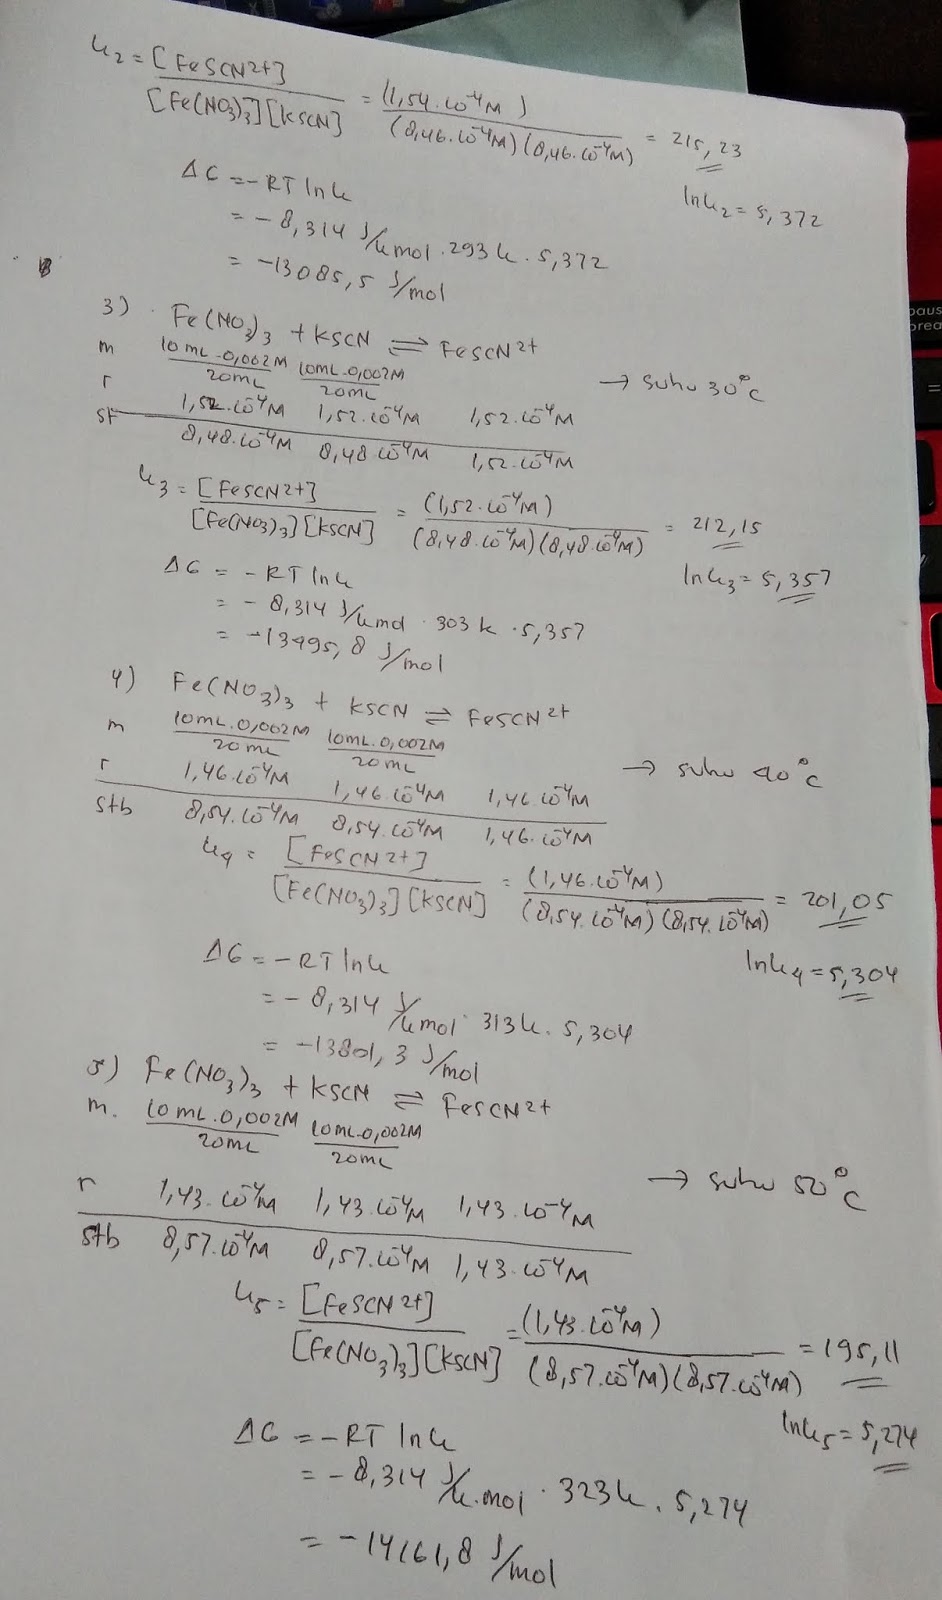 k2 = [FeSCN2+] / [Fe(NO3)3][KSCN] = (1,54.10-4M) / (8,46.10-4M)(8,46.10-4M) = 215,23
ln k2 = 5,372
ΔG = -RT ln k
= -8,314 J/k mol . 293 k . 5,372
= -13085,5 J/mol
3) Fe(NO3)3 + KSCN ⇌ FeSCN2+
m 10 mL.0,002M/20mL 10mL.0,002M/20mL → suhu 30°C
r 1,52.10-4M 1,52.10-4M 1,52.10-4M
st 8,48.10-4M 8,48.10-4M 1,52.10-4M
k3 = [FeSCN2+] / [Fe(NO3)3][KSCN] = (1,52.10-4M) / (8,48.10-4M)(8,48.10-4M) = 212,15
ln k3 = 5,357
ΔG = -RT ln k
= -8,314 J/k mol . 303 k . 5,357
= -13495,8 J/mol
4) Fe(NO3)3 + KSCN ⇌ FeSCN2+
m 10mL.0,002M/20mL 10mL.0,002M/20mL → suhu 40°C
r 1,46.10-4M 1,46.10-4M 1,46.10-4M
stb 8,54.10-4M 8,54.10-4M 1,46.10-4M
k4 = [FeSCN2+] / [Fe(NO3)3][KSCN] = (1,46.10-4M) / (8,54.10-4M)(8,54.10-4M) = 201,05
ln k4 = 5,304
ΔG = -RT ln k
= -8,314 J/k mol . 313 k . 5,304
= -13801,3 J/mol
5) Fe(NO3)3 + KSCN ⇌ FeSCN2+
m. 10 mL.0,002M/20mL 10mL.0,002M/20mL → suhu 50°C
r 1,43.10-4M 1,43.10-4M 1,43.10-4M
stb 8,57.10-4M 8,57.10-4M 1,43.10-4M
k5 = [FeSCN2+] / [Fe(NO3)3][KSCN] = (1,43.10-4M) / (8,57.10-4M)(8,57.10-4M) = 195,11
ln k5 = 5,274
ΔG = -RT ln k
= -8,314 J/k.mol . 323k . 5,274
= -14161,8 J/mol